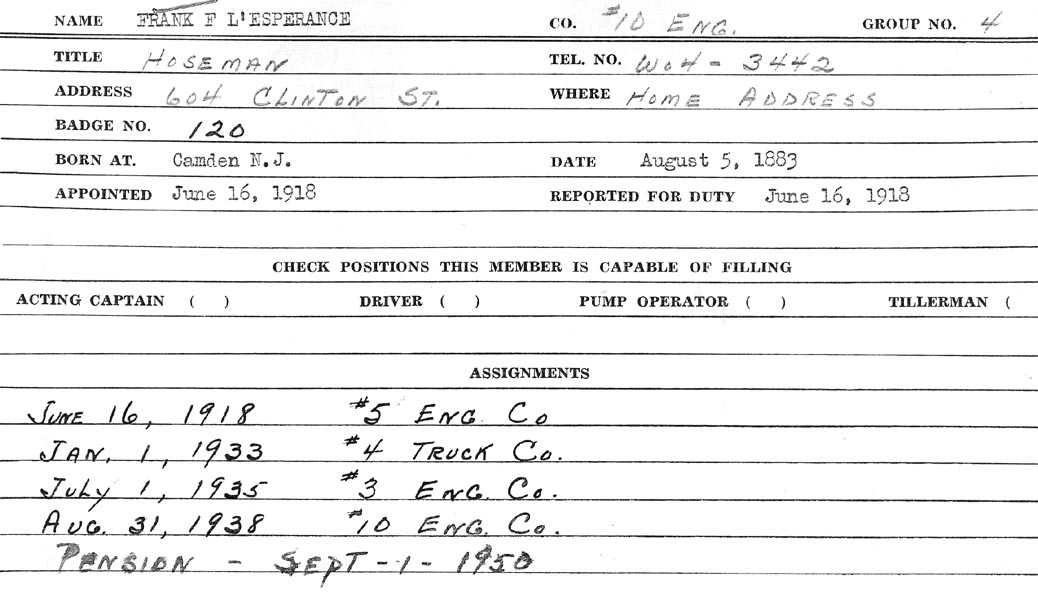 NAME FRANK F L'ESPERANCE CO. #10 ENG. GROUP NO. 4
TITLE HOSEMAN TEL. NO. WO4-3442
ADDRESS 604 CLINTON ST. WHERE HOME ADDRESS
BADGE NO. 120
BORN AT. Camden N.J. DATE August 5, 1883
APPOINTED June 16, 1918 REPORTED FOR DUTY June 16, 1918
CHECK POSITIONS THIS MEMBER IS CAPABLE OF FILLING
ACTING CAPTAIN ( ) DRIVER ( ) PUMP OPERATOR ( ) TILLERMAN (
ASSIGNMENTS
JUNE 16, 1918 #5 ENG. CO
JAN. 1, 1933 #4 TRUCK CO.
JULY 1, 1935 #3 ENG. CO.
AUG. 31, 1938 #10 ENG. CO.
PENSION - SEPT-1-1950